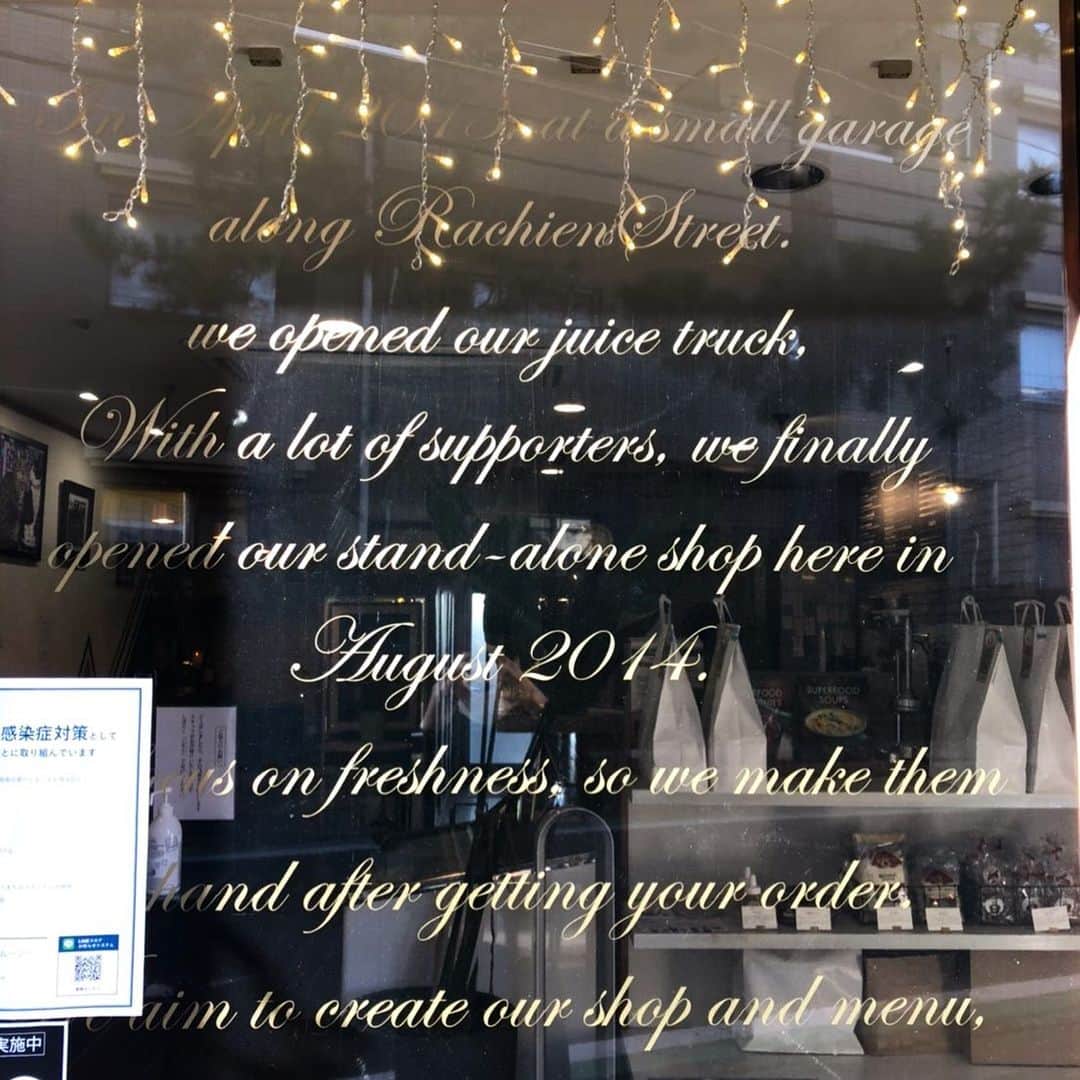 In April 2013, at a small garage
along Rachien Street.
we opened our juice truck,
With a lot of supporters, we finally
opened our stand-alone shop here in
August 2014.
on freshness, so we make them
hand after getting your order.
aim to create our shop and menu,
感染症対策として
とに取り組んでいます
SUPERFOOD
SOUPS
実施中